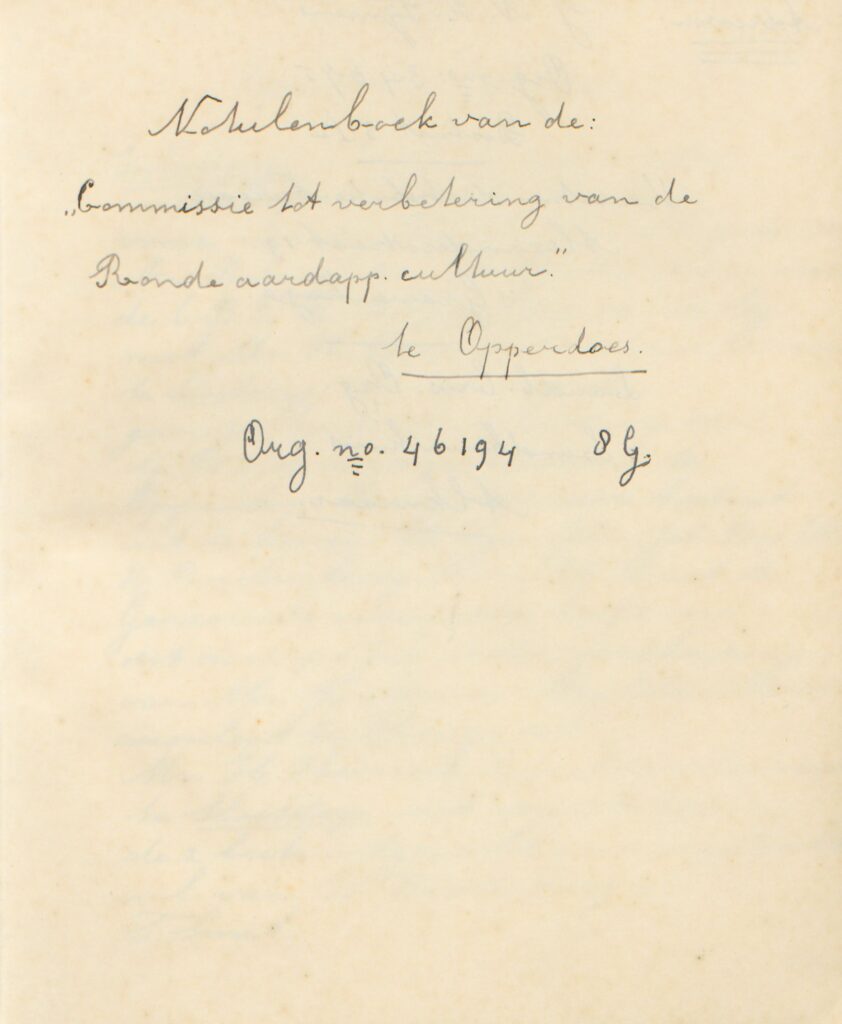 Notulenboek van de:
„Commissie tot verbetering van de
Ronde aardapp. cultuur."
te Opperdoes.
Org. no. 46194 8 G.